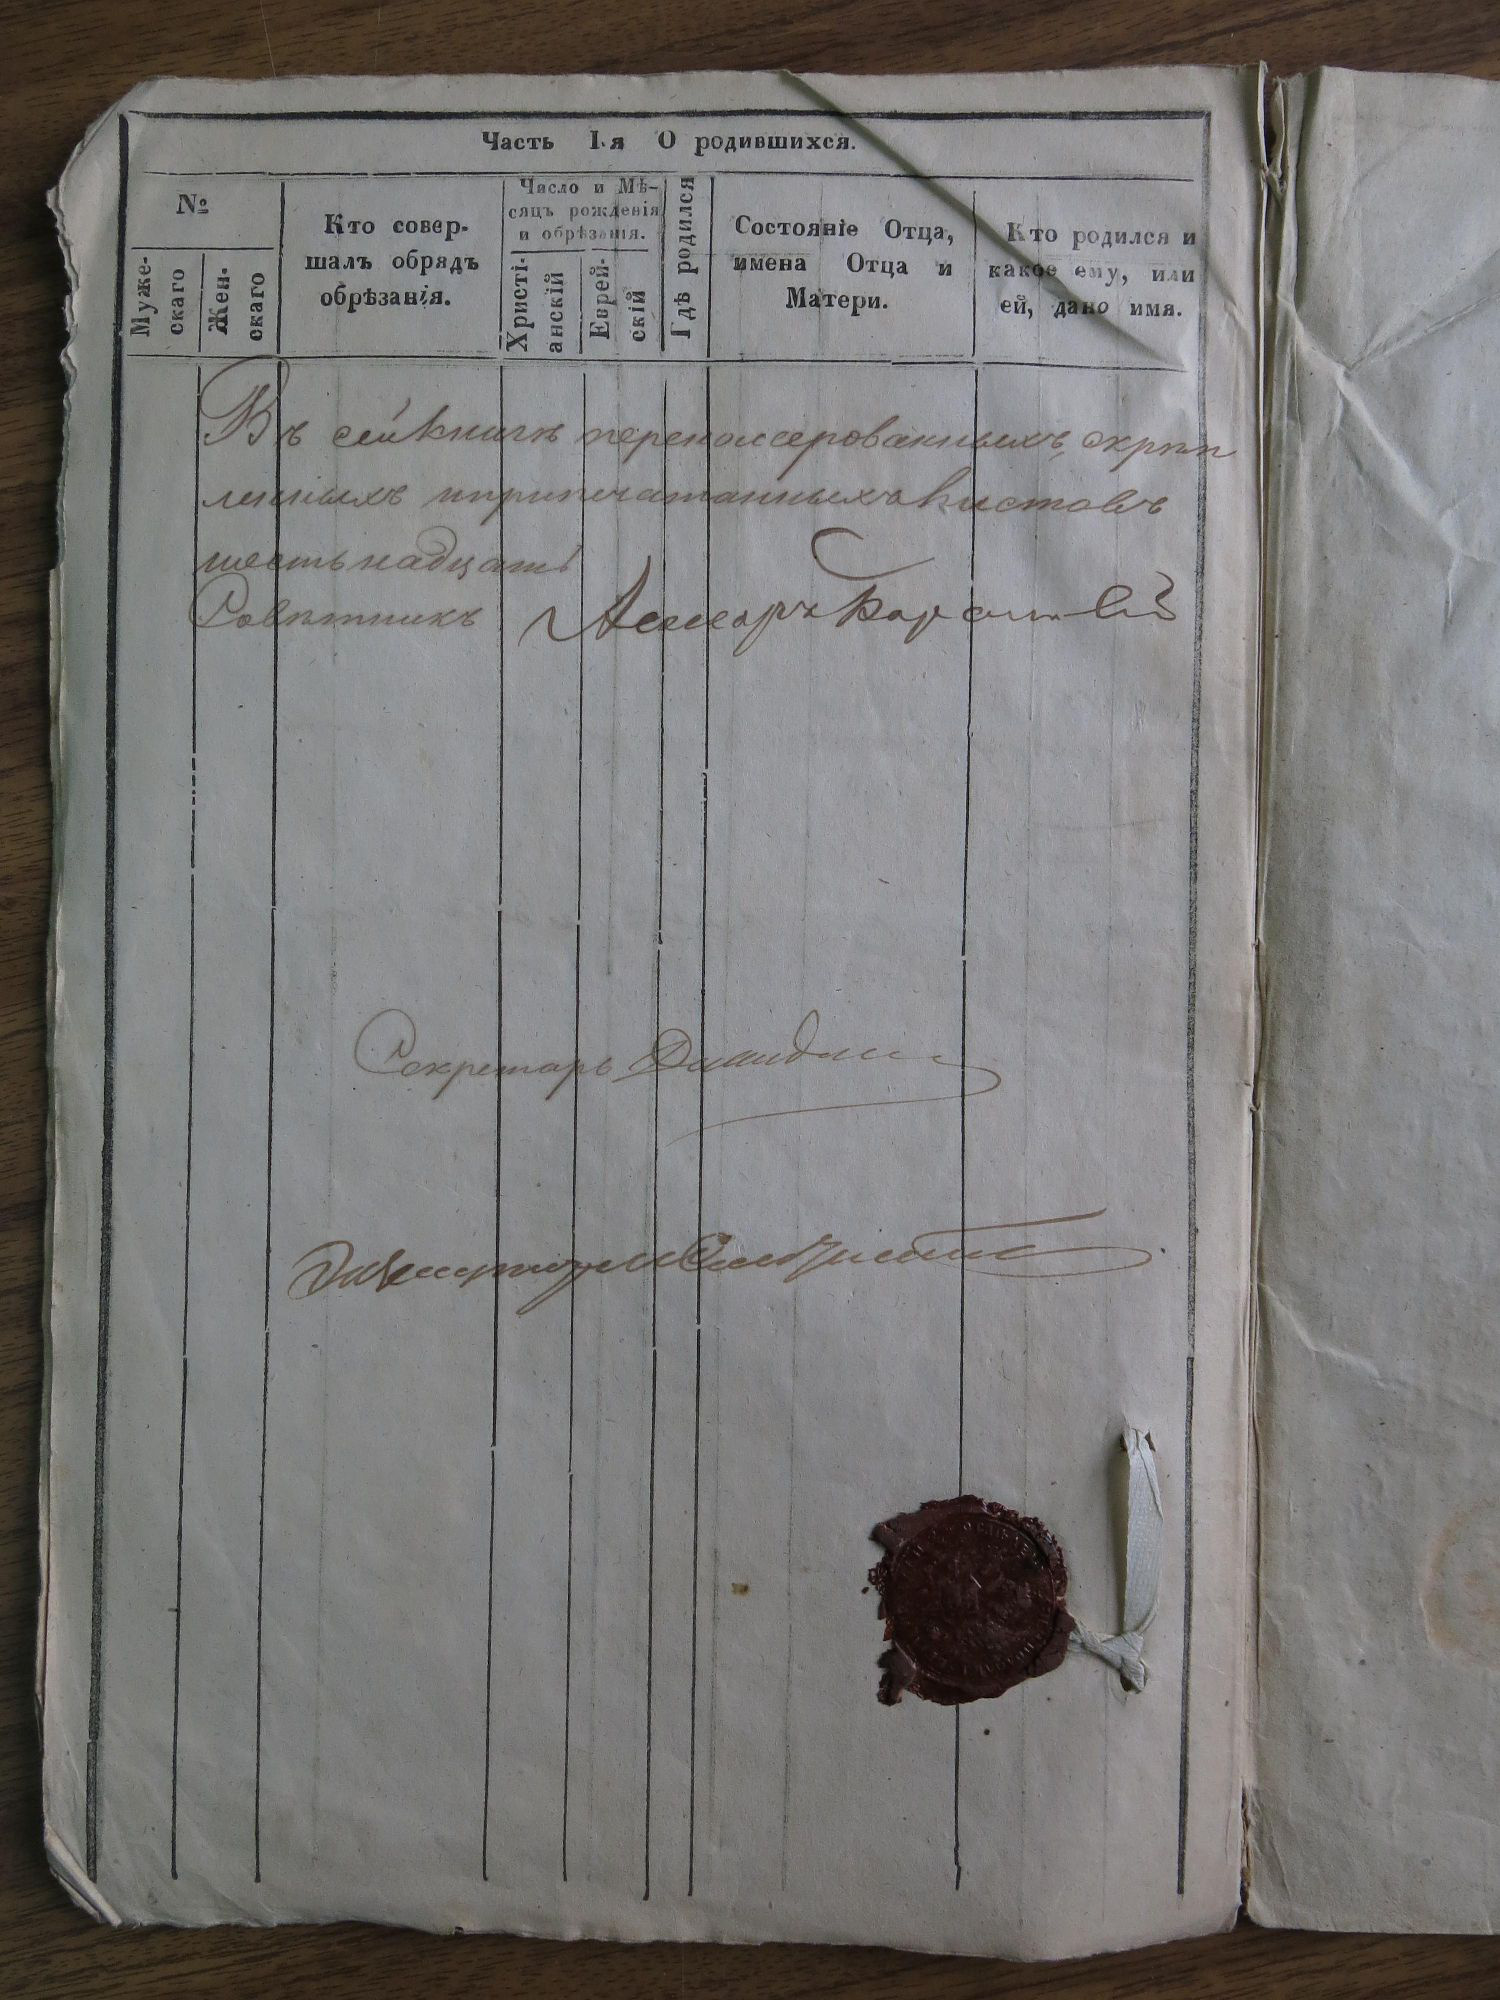 Часть I-я О родившихся.
№
Муже-
скаго
Жен-
скаго
Кто совер-
шалъ обрядъ
обрѣзанія.
Число и Мѣ-
сяцъ рожденія
и обрѣзанія.
Христі-
анскій
Еврей-
скій
Гдѣ родился
Состояніе Отца,
имена Отца и
Матери.
Кто родился и
какое ему, или
ей, дано имя.
Въ сей книгѣ перенумерованныхъ, скрѣп
ленныхъ и припечатанныхъ листовъ
шестьнадцать
Совѣтникъ
Секретарь